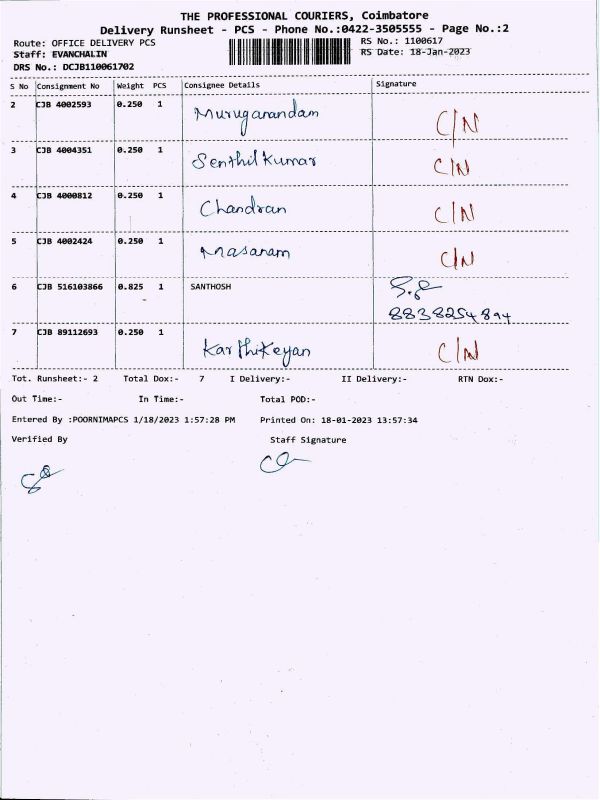 THE PROFESSIONAL COURIERS, Coimbatore
Delivery Runsheet - PCS - Phone No.:0422-3505555 - Page No.:2
Route: OFFICE DELIVERY PCS RS No.: 1100617
Staff: EVANCHALIN RS Date: 18-Jan-2023
DRS No.: DCJB110061702
S No Consignment No Weight PCS Consignee Details Signature
2 CJB 4002593 0.250 1 Muruganandam C/N
3 CJB 4004351 0.250 1 Senthil Kumar C/N
4 CJB 4000812 0.250 1 Chandran C/N
5 CJB 4002424 0.250 1 Masanam C/N
6 CJB 516103866 0.825 1 SANTHOSH
8838254894
7 CJB 89112693 0.250 1 Karthikeyan C/N
Tot. Runsheet:- 2 Total Dox:- 7 I Delivery:- II Delivery:- RTN Dox:-
Out Time:- In Time:- Total POD:-
Entered By :POORNIMAPCS 1/18/2023 1:57:28 PM Printed On: 18-01-2023 13:57:34
Verified By Staff Signature